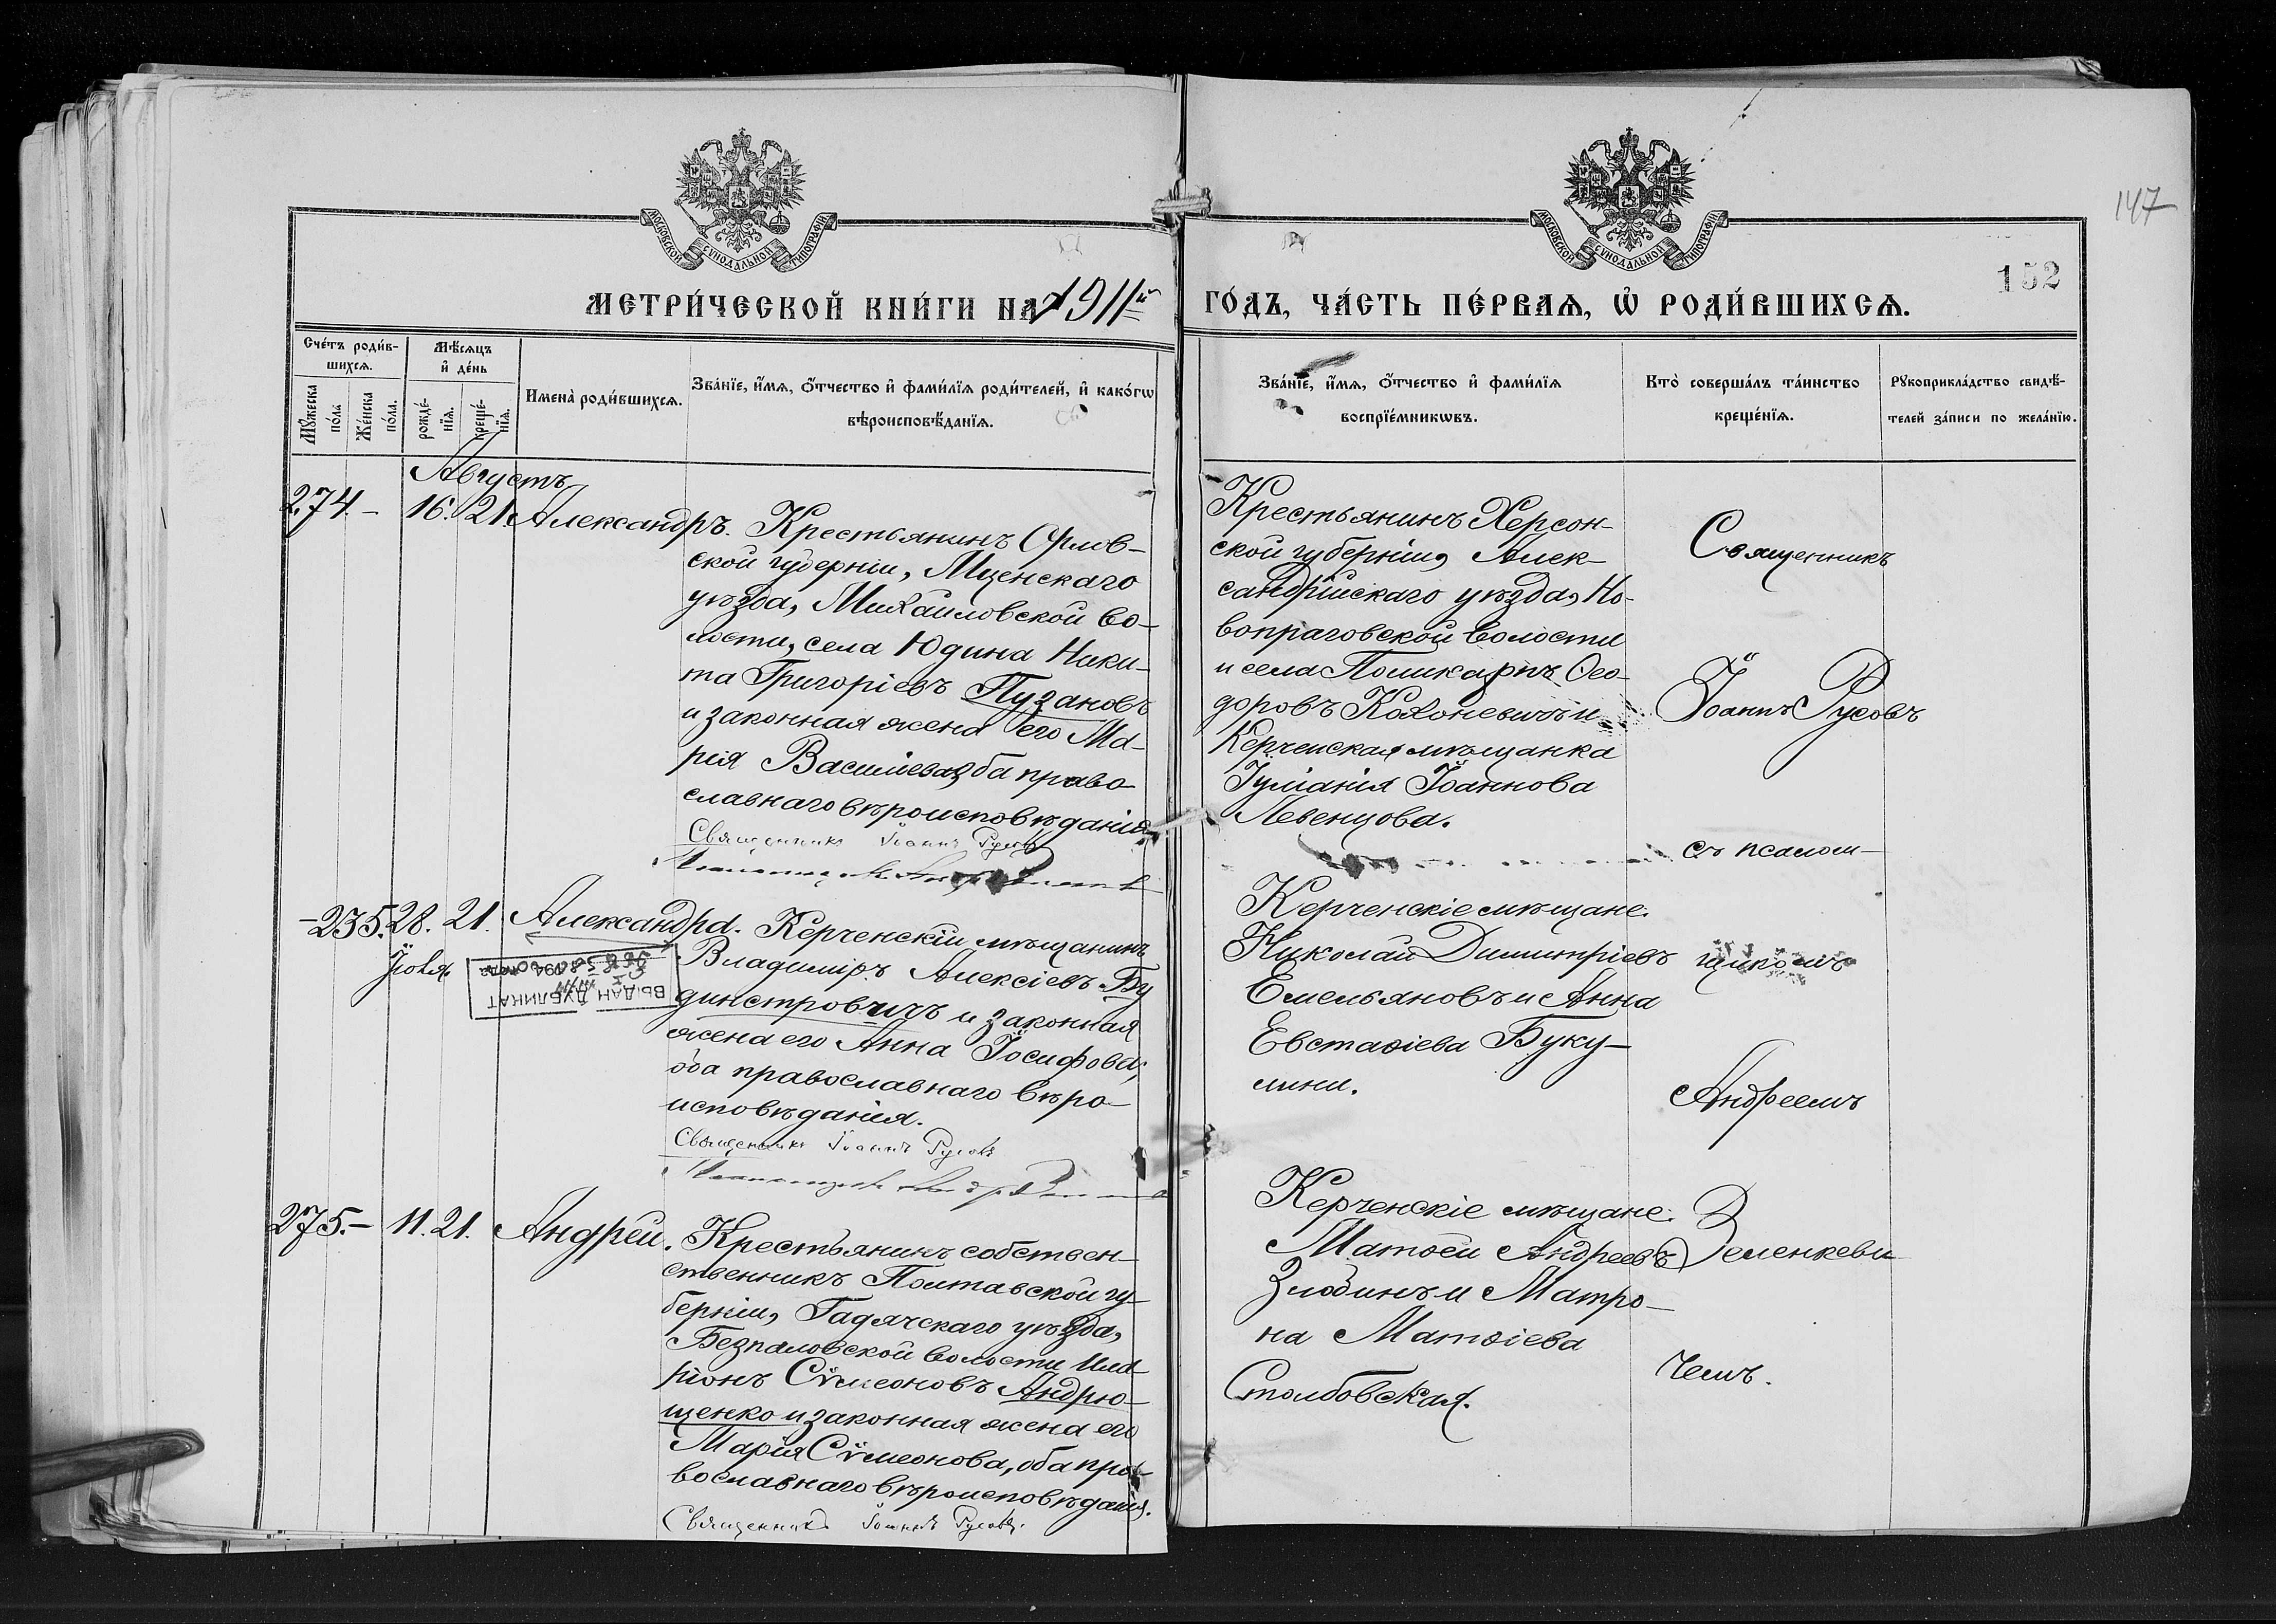 147
152
МОСКОВСКОЙ СѴНОДАЛЬНОЙ ТИПОГРАФІИ
МОСКОВСКОЙ СѴНОДАЛЬНОЙ ТИПОГРАФІИ
МЕТРИ́ЧЕСКОЙ КНИ́ГИ НА 1911й
ГО́ДЪ, ЧА́СТЬ ПЕ́РВАѦ, Ѽ РОДИ́ВШИХСѦ.
Сче́тъ роди́в-
шихсѧ.
Мꙋжеска по́ла
Же́нска по́ла.
Мѣ́сѧцъ
и҆ де́нь
рожде́-
нїѧ.
креще́-
нїѧ.
Имена̀ роди́вшихсѧ.
Зва́нїе, и҆́мѧ, ѻ҆́тчество и҆ фами́лїѧ роди́телей, и҆ како́гѡ
вѣроисповѣ́данїѧ.
Зва́нїе, и҆́мѧ, ѻ҆́тчество и҆ фами́лїѧ
воспрїе́мникѡвъ.
Кто̀ соверша́лъ та́инство
креще́нїѧ.
Рꙋкоприкла́дство свидѣ́-
телей за́писи по жела́нїю.
Августъ
274. – 16. 21. Александръ. Крестьянинъ Орлов-
ской губерніи, Мценскаго
уѣзда, Михайловской во-
лости, села Юдина Ники-
та Григоріевъ Пузановъ
и законная жена его Ма-
рія Василіева, оба право-
славнаго вѣроисповѣданія.
Священникъ Іоаннъ Русовъ
Крестьянинъ Херсон-
ской губерніи, Алек-
сандрійскаго уѣзда, Но-
вопраговской волости
и села Поликарпъ Ѳео-
доровъ Кохоневичъ и
Керченская мѣщанка
Іуліанія Іоаннова
Левенцова.
Священникъ
Іоаннъ Русовъ
съ псалом-
– 235. 28. 21. Александра. Керченскій мѣщанинъ
Іюля.
Владиміръ Алексіевъ Бу
динстровичъ и законная
жена его Анна Іосифова,
оба православнаго вѣро-
исповѣданія.
Священникъ Іоаннъ Русовъ
ВЫДАН ДУБЛИКАТ
194
Керченскіе мѣщане:
Николай Димитріевъ
Емельяновъ и Анна
Евстаѳіева Буку-
лини.
щикомъ
Андреемъ
275. – 11. 21. Андрей. Крестьянинъ собствен-
ственникъ Полтавской гу-
берніи, Гадячскаго уѣзда,
Безпаловской волости Ила
ріонъ Сѵмеоновъ Андрю-
щенко и законная жена его
Марія Сѵмеонова, оба пра-
вославнаго вѣроисповѣданія.
Священникъ Іоаннъ Русовъ.
Керченскіе мѣщане:
Матѳей Андреевъ
Злобинъ и Матро-
на Матѳіева
Столбовская.
Зеленкеви
чемъ.